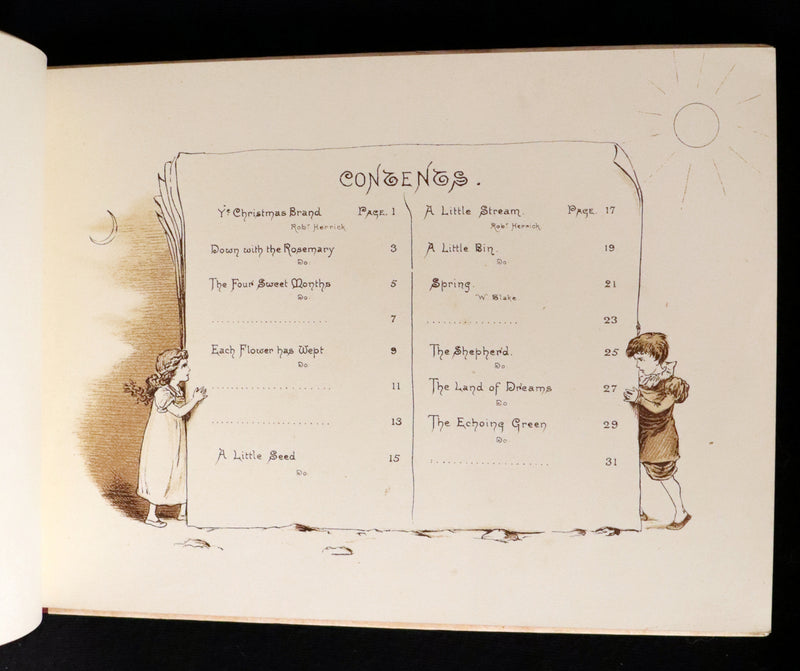 CONTENTS.
Yᵉ Christmas Brand PAGE. 1
Robᵗ Herrick
Down with the Rosemary 3
Do.
The Four Sweet Months 5
Do.
........................ 7
Each Flower has Wept 9
Do
........................ 11
........................ 13
A Little Seed 15
Do.
A Little Stream. PAGE. 17
Robᵗ Herrick
A Little Bin. 19
Do
Spring. 21
W. Blake.
................... 23
The Shepherd. 25
Do
The Land of Dreams 27
Do
The Echoing Green 29
Do.
........................ 31